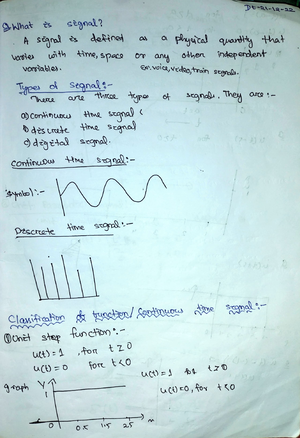 Dt-21-12-22
Q What is signal?
A signal is defined as a physical quantity that
varies with time, space or any other independent
variables. Ex: voice, video, train signals.
Types of signal:-
There are three types of signals. They are:-
a) Continuous time signal
b) discrete time signal
c) digital signal.
Continuous time signal:-
Symbol:-
Discrete time signal:-
Clasification of function/Continuous time signal:-
1) Unit step function:-
u(t)=1, for t≥0
u(t)=0 for t<0
u(t)=1 for t≥0
u(t)=0, for t<0
graph
Y
1
0 0.5 1.5 2.5